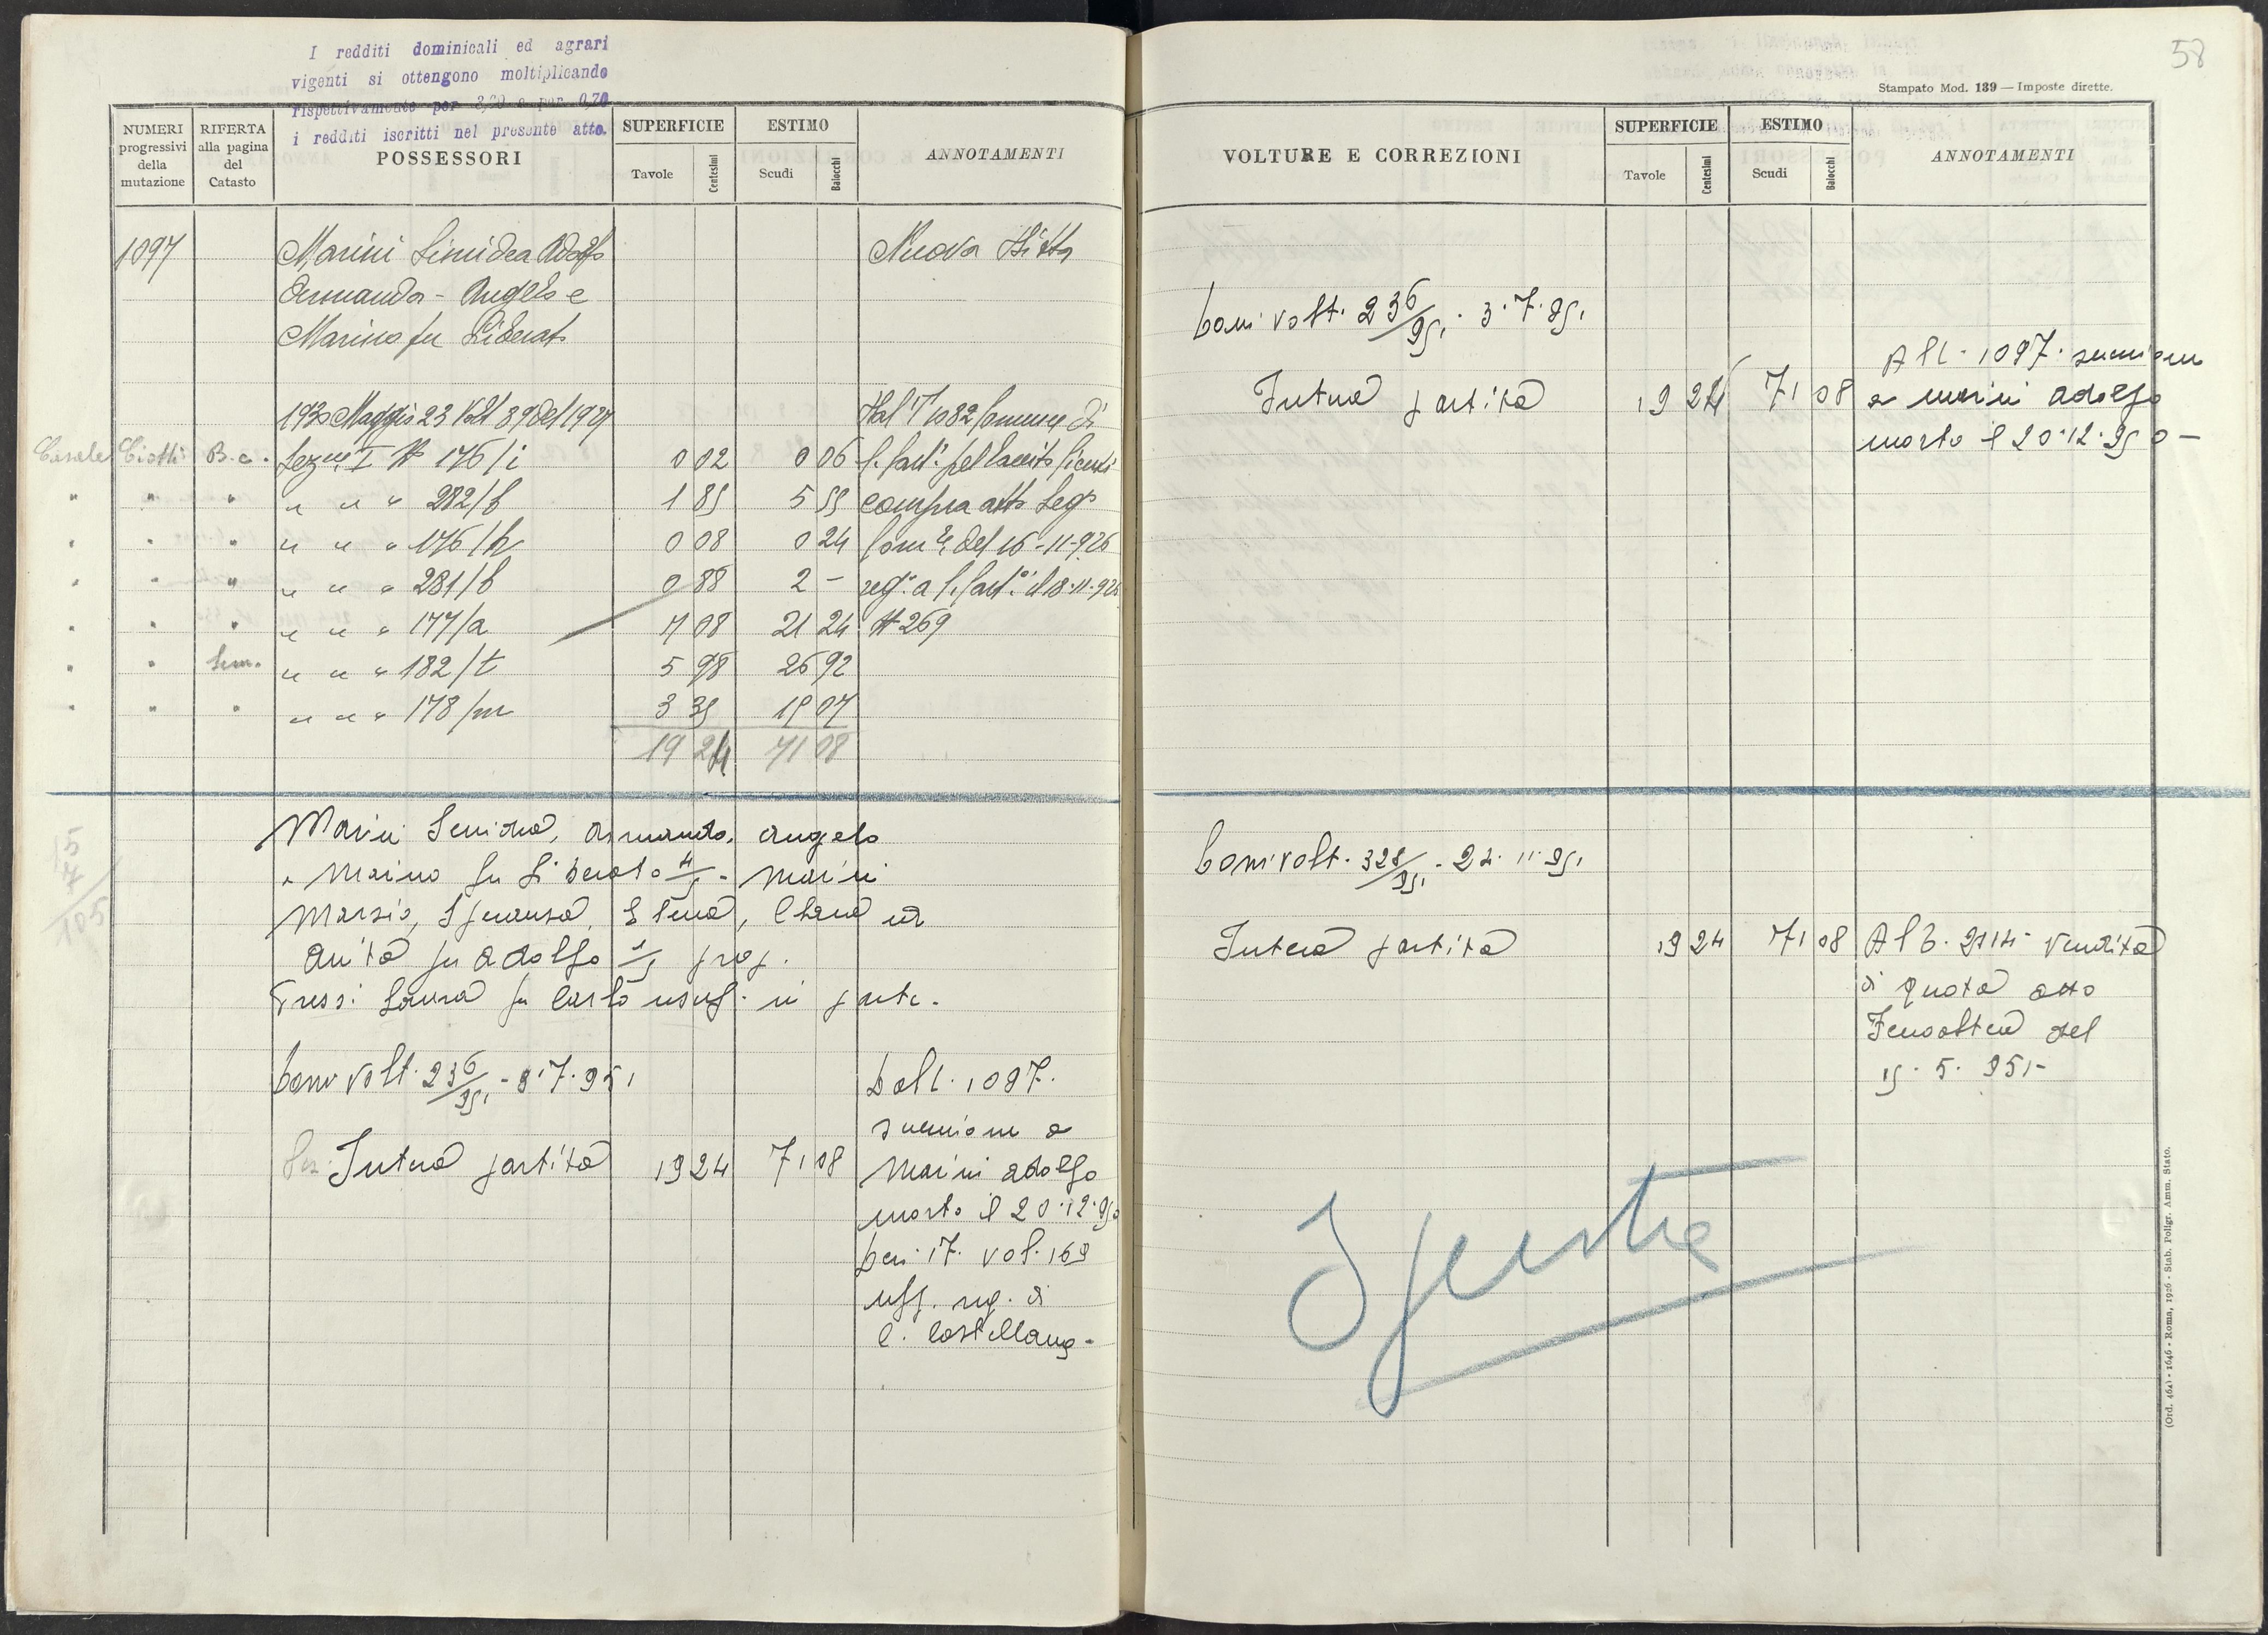 I redditi dominicali ed agrari
vigenti si ottengono moltiplicando
rispettivamente per 3,20 e per 0,70
i redditi iscritti nel presente atto.
NUMERI progressivi della mutazione
RIFERTA alla pagina del Catasto
POSSESSORI
SUPERFICIE
Tavole
Centesimi
ESTIMO
Scudi
Baiocchi
ANNOTAMENTI
1097
Marini Adolfo
Armando - Angelo e
Marino fu Liberato
Nuova Ditta
1930 Maggio 23 Volt 39 del 1927
Dal T 1082 Comune di
Casale Ciotti B.c. Sez.ne I N 176/i 0 02 0 06
" " " " " " 282/b 1 85 5 55 compra atto Seg.
" " " " " " 176/h 0 08 0 24 del 16-11-926
" " " " " " 281/b 0 88 2 - reg.o a
" " " " " " 177/a 7 08 21 24 N 269
" " Sem. " " " 182/t 5 98 26 92
" " " " " " 178/m 3 35 15 07
19 24 71 08
15
4
105
Marini Armando, Angelo
e Marino fu Liberato 4/5 - Marini
Marsio, Speranza, Elena, ed
Anita fu Adolfo 1/5 prop.
Laura fu Carlo usuf. in parte.
Com. volt. 236/951 - 3.7.951
Dall. 1097.
successione a
Intera partita 19 24 71 08 Marini Adolfo
morto il 20.12.950
Den. 17. vol. 169
uff. reg. di
C. Castellana -
58
Stampato Mod. 139 — Imposte dirette.
VOLTURE E CORREZIONI
SUPERFICIE
Tavole
Centesimi
ESTIMO
Scudi
Baiocchi
ANNOTAMENTI
Com. volt. 236/951. 3.7.951
All. 1097. successione
Intera partita 19 24 71 08 a Marini Adolfo
morto il 20.12.950 -
Com. volt. 328/951. 24.11.951
Intera partita 19 24 71 08 Al 2114 Vendita
di quota atto
Fenoaltea del
15.5.951 -
Spenta
(Ord. 464) - 1646 - Roma, 1926 - Stab. Poligr. Amm. Stato.